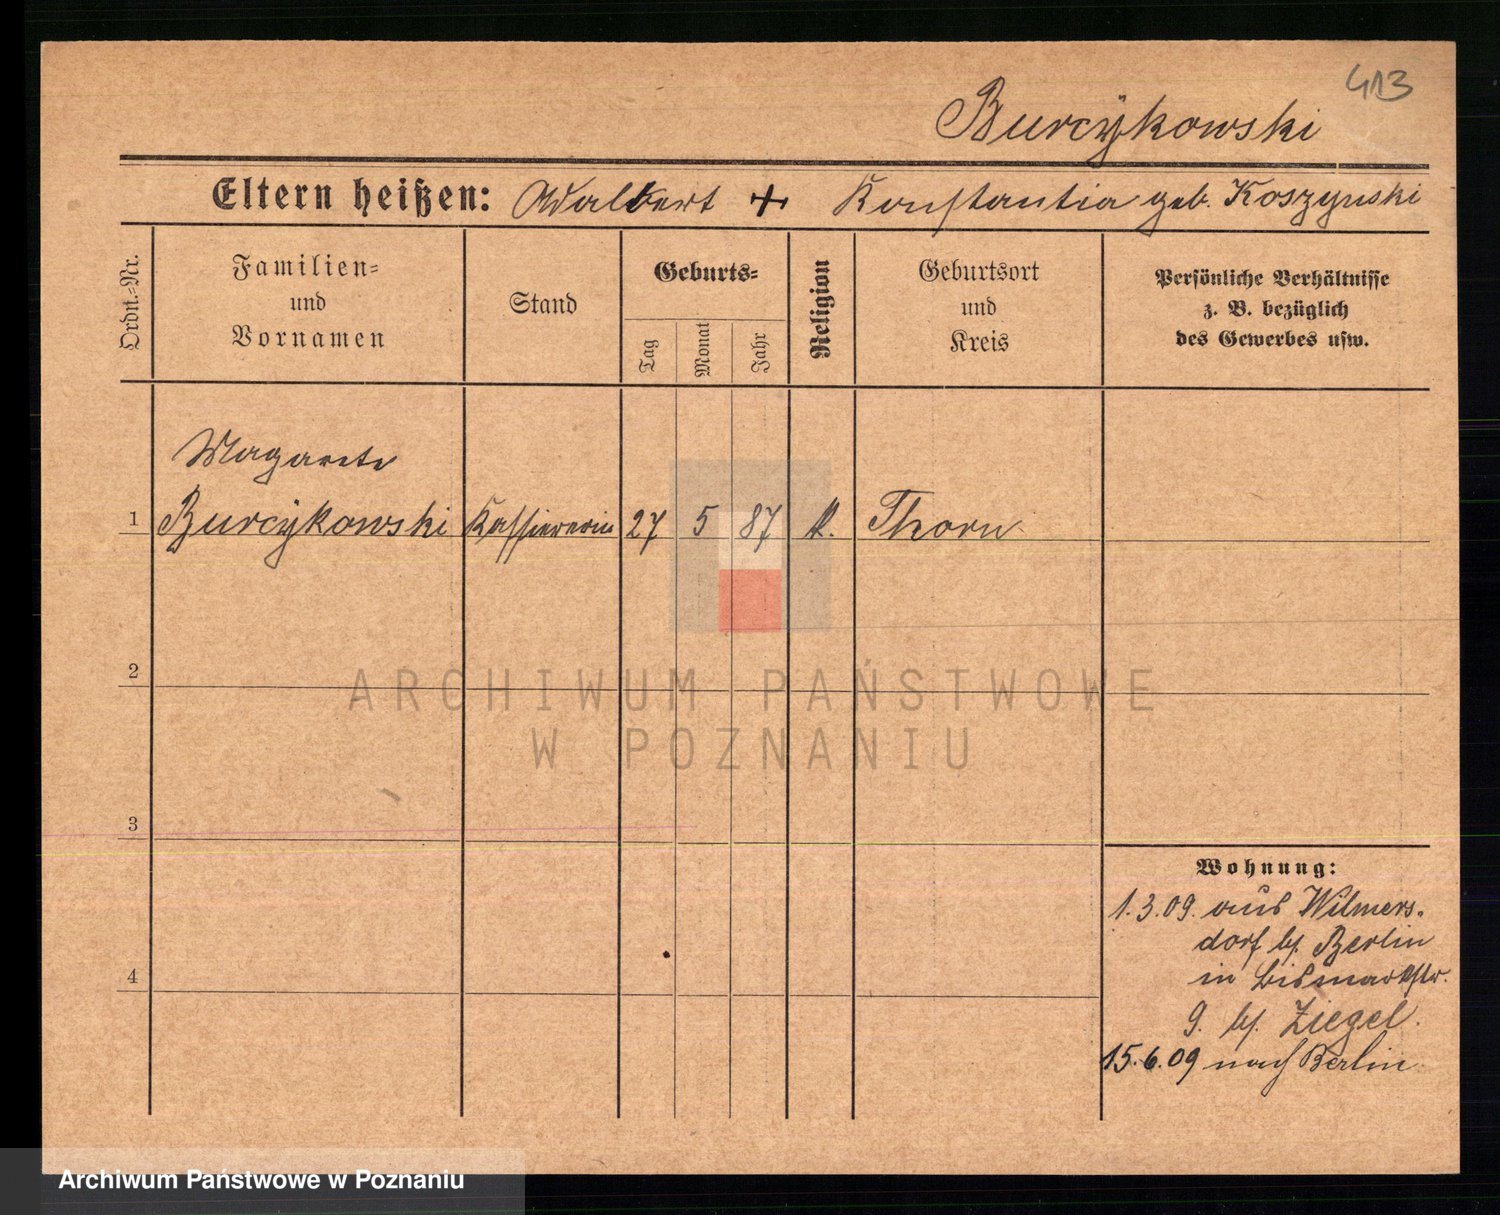 413
Burcÿkowski
Eltern heißen: Adalbert + Konstantia geb. Koszynski
Ordn.-Nr.
Familien-
und
Vornamen
Stand
Geburts-
Tag
Monat
Jahr
Religion
Geburtsort
und
Kreis
Persönliche Verhältnisse
z. B. bezüglich
des Gewerbes usw.
Magarete
1 Burcÿkowski Kassiererin 27 5 87 k. Thorn
2
ARCHIWUM PAŃSTWOWE
W POZNANIU
3
Wohnung:
1.3.09. aus Wilmers-
dorf b/. Berlin
in Bismarckstr.
4
9. b/. Ziegel.
15.6.09 nach Berlin
Archiwum Państwowe w Poznaniu